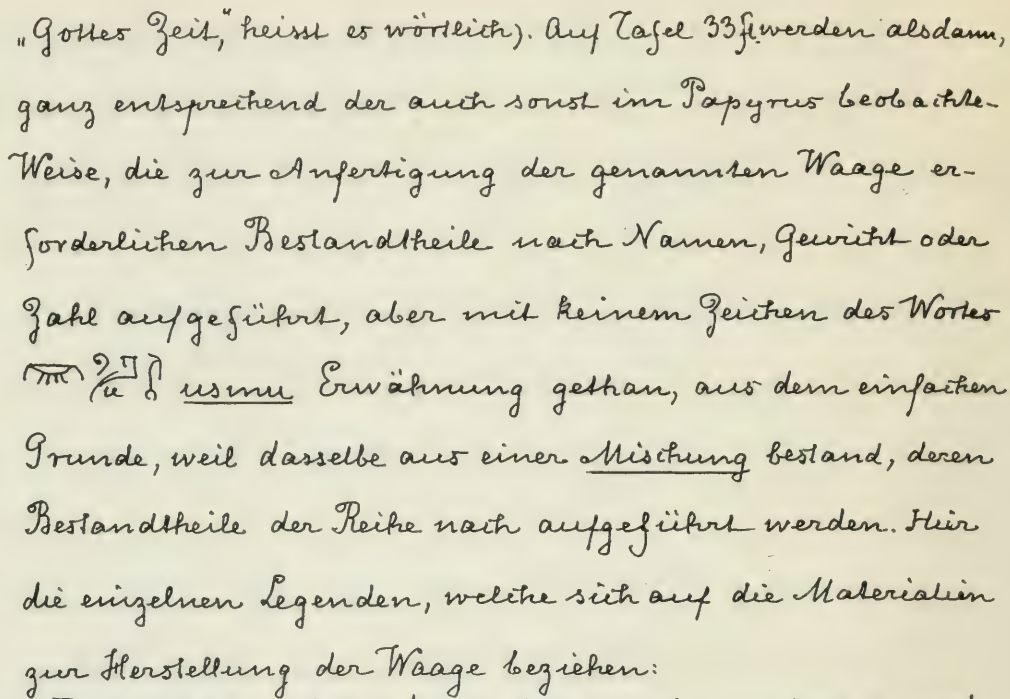 „Gottes Zeit,“ heisst es wörtlich). Auf Tafel 33 fl. werden alsdann,
ganz entsprechend der auch sonst im Papyrus beobachte-
Weise, die zur Anfertigung der genannten Waage er-
forderlichen Bestandtheile nach Namen, Gewicht oder
Zahl aufgeführt, aber mit keinem Zeichen des Wortes
usmu Erwähnung gethan, aus dem einfachen
Grunde, weil dasselbe aus einer Mischung bestand, deren
Bestandtheile der Reihe nach aufgeführt werden. Hier
die einzelnen Legenden, welche sich auf die Materialien
zur Herstellung der Waage beziehen: